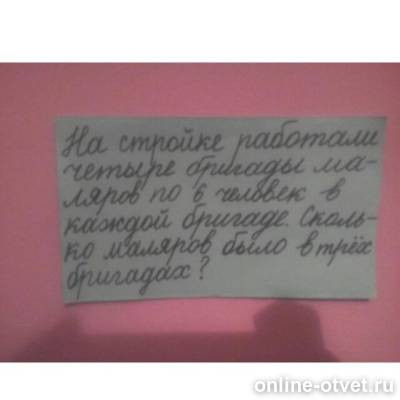 На стройке работали
четыре бригады ма-
ляров по 6 человек в
каждой бригаде. Сколь-
ко маляров было в трёх
бригадах?
online-otvet.ru